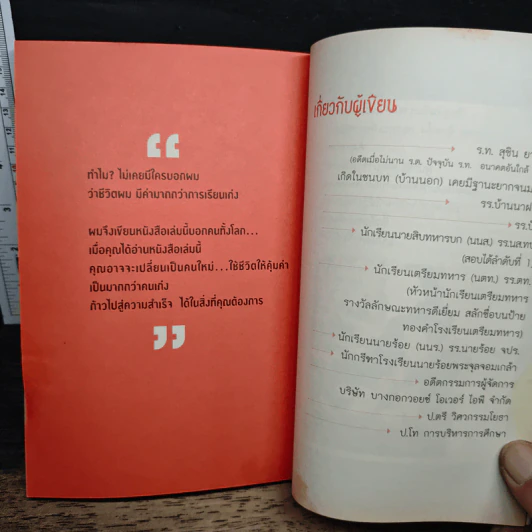 “
ทำไม? ไม่เคยมีใครบอกผม
ว่าชีวิตผม มีค่ามากกว่าการเรียนเก่ง
ผมจึงเขียนหนังสือเล่มนี้บอกคนทั้งโลก...
เมื่อคุณได้อ่านหนังสือเล่มนี้
คุณอาจจะเปลี่ยนเป็นคนใหม่...ใช้ชีวิตให้คุ้มค่า
เป็นมากกว่าคนเก่ง
ก้าวไปสู่ความสำเร็จ ได้ในสิ่งที่คุณต้องการ
”
เกี่ยวกับผู้เขียน
ร.ท. สุชิน
(อดีตเมื่อไม่นาน ร.ต. ปัจจุบัน ร.ท. อนาคตอันใกล้
เกิดในชนบท (บ้านนอก) เคยมีฐานะยากจน
รร.บ้านนา
นักเรียนนายสิบทหารบก (นนส.) รร.นส.
(สอบได้ลำดับที่ 1
นักเรียนเตรียมทหาร (นตท.) รร.ตท.
(หัวหน้านักเรียนเตรียมทหาร
รางวัลลักษณะทหารดีเยี่ยม สลักชื่อบนป้าย
ทองคำโรงเรียนเตรียมทหาร)
นักเรียนนายร้อย (นนร.) รร.นายร้อย จปร.
นักกรีฑาโรงเรียนนายร้อยพระจุลจอมเกล้า
อดีตกรรมการผู้จัดการ
บริษัท บางกอกวอยซ์ โอเวอร์ ไอพี จำกัด
ป.ตรี วิศวกรรมโยธา
ป.โท การบริหารการศึกษา